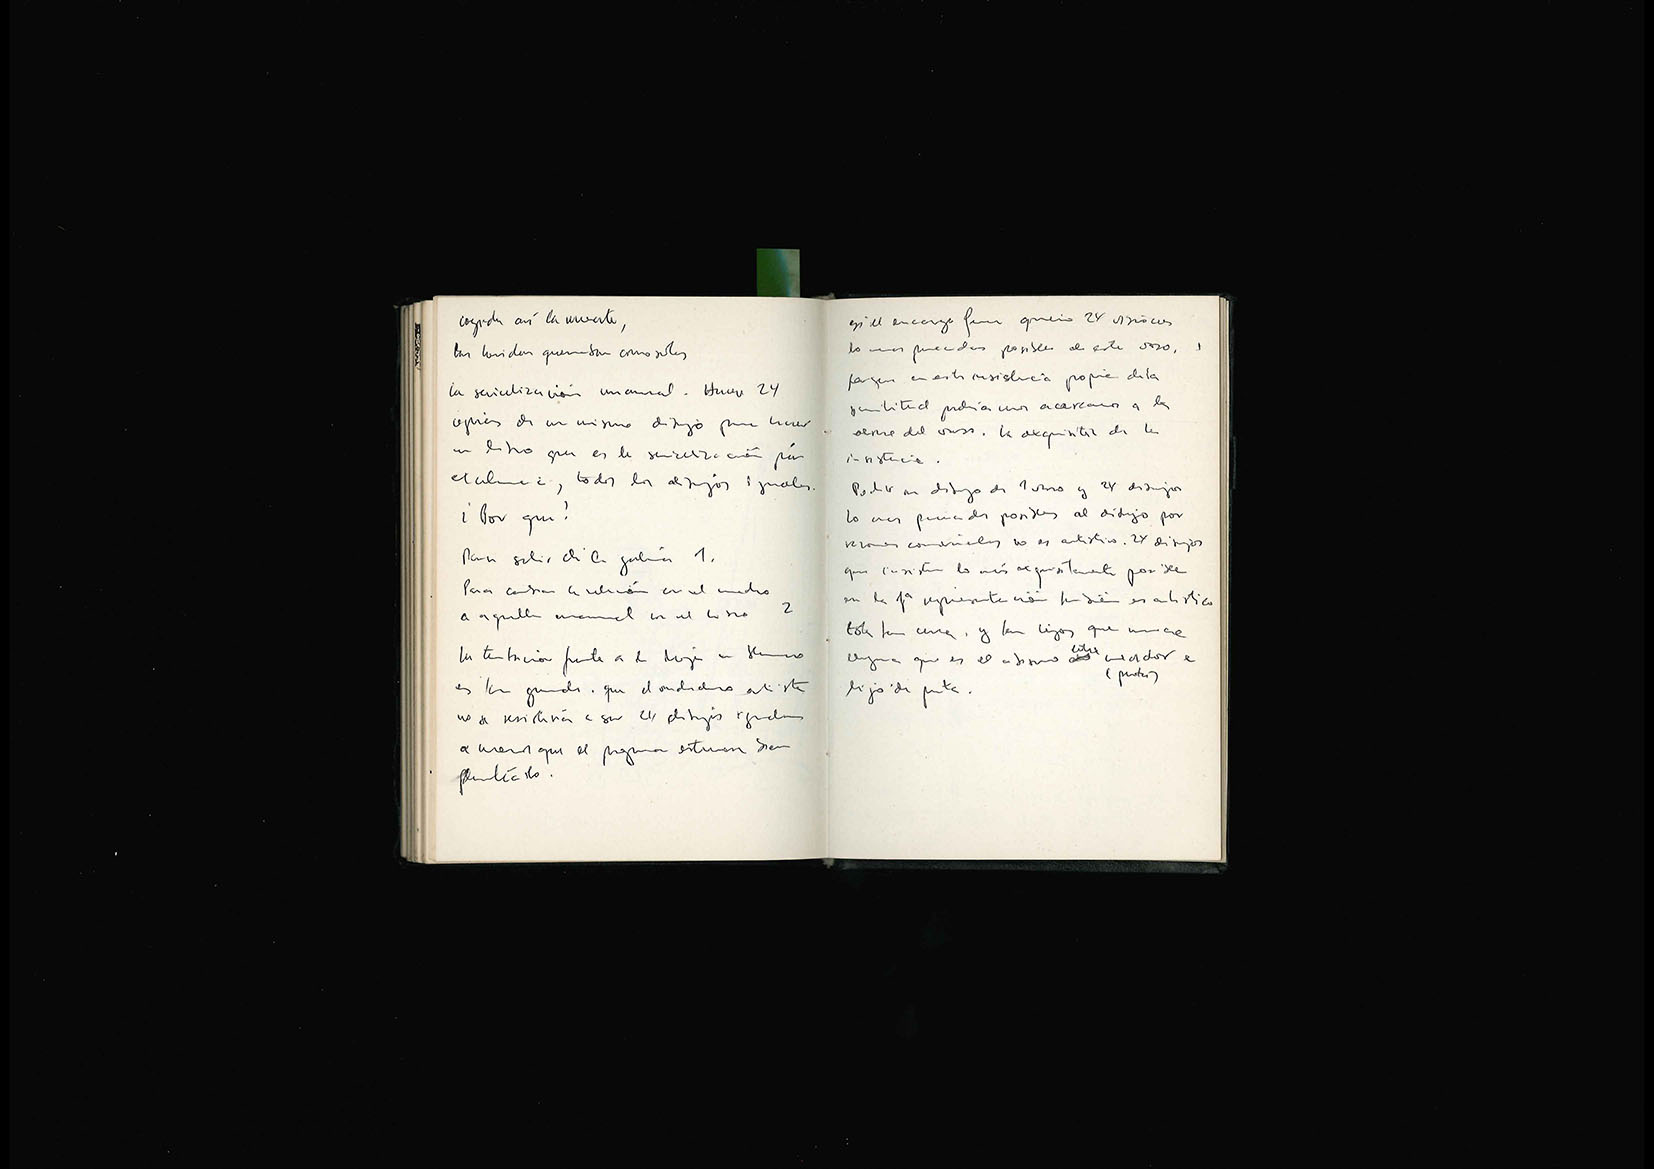 cogida así la muerte,
las heridas quemaban como soles
la serialización manual. Hacer 24
copias de un mismo dibujo para hacer
un libro que es la serialización por
, todos los dibujos iguales.
¿Por qué?
Para salir de la galería 1.
Para centrar la relación en el medio
a aquella manual en el libro 2
la tentación frente a la hoja en blanco
es tan grande. que el verdadero artista
no se resistiría a sus 24 dibujos iguales
a menos que el programa estuviera bien
planteado.
si el encargo fuera quiero 24 visiones
lo más parecidas posibles de este vaso,
porque en esta insistencia propia de la
similitud podríamos acercarnos a la
del vaso. la exquisitez de la
insistencia.
Pedir un dibujo de 1 vaso y 24 dibujos
lo más parecidos posibles al dibujo por
razones comerciales no es artístico. 24 dibujos
que insistan lo más exquisitamente posible
en la 1ª representación también es artístico
tan cerca, y tan lejos que nunca
que es el mismo entre
(puta)
hijo de puta.